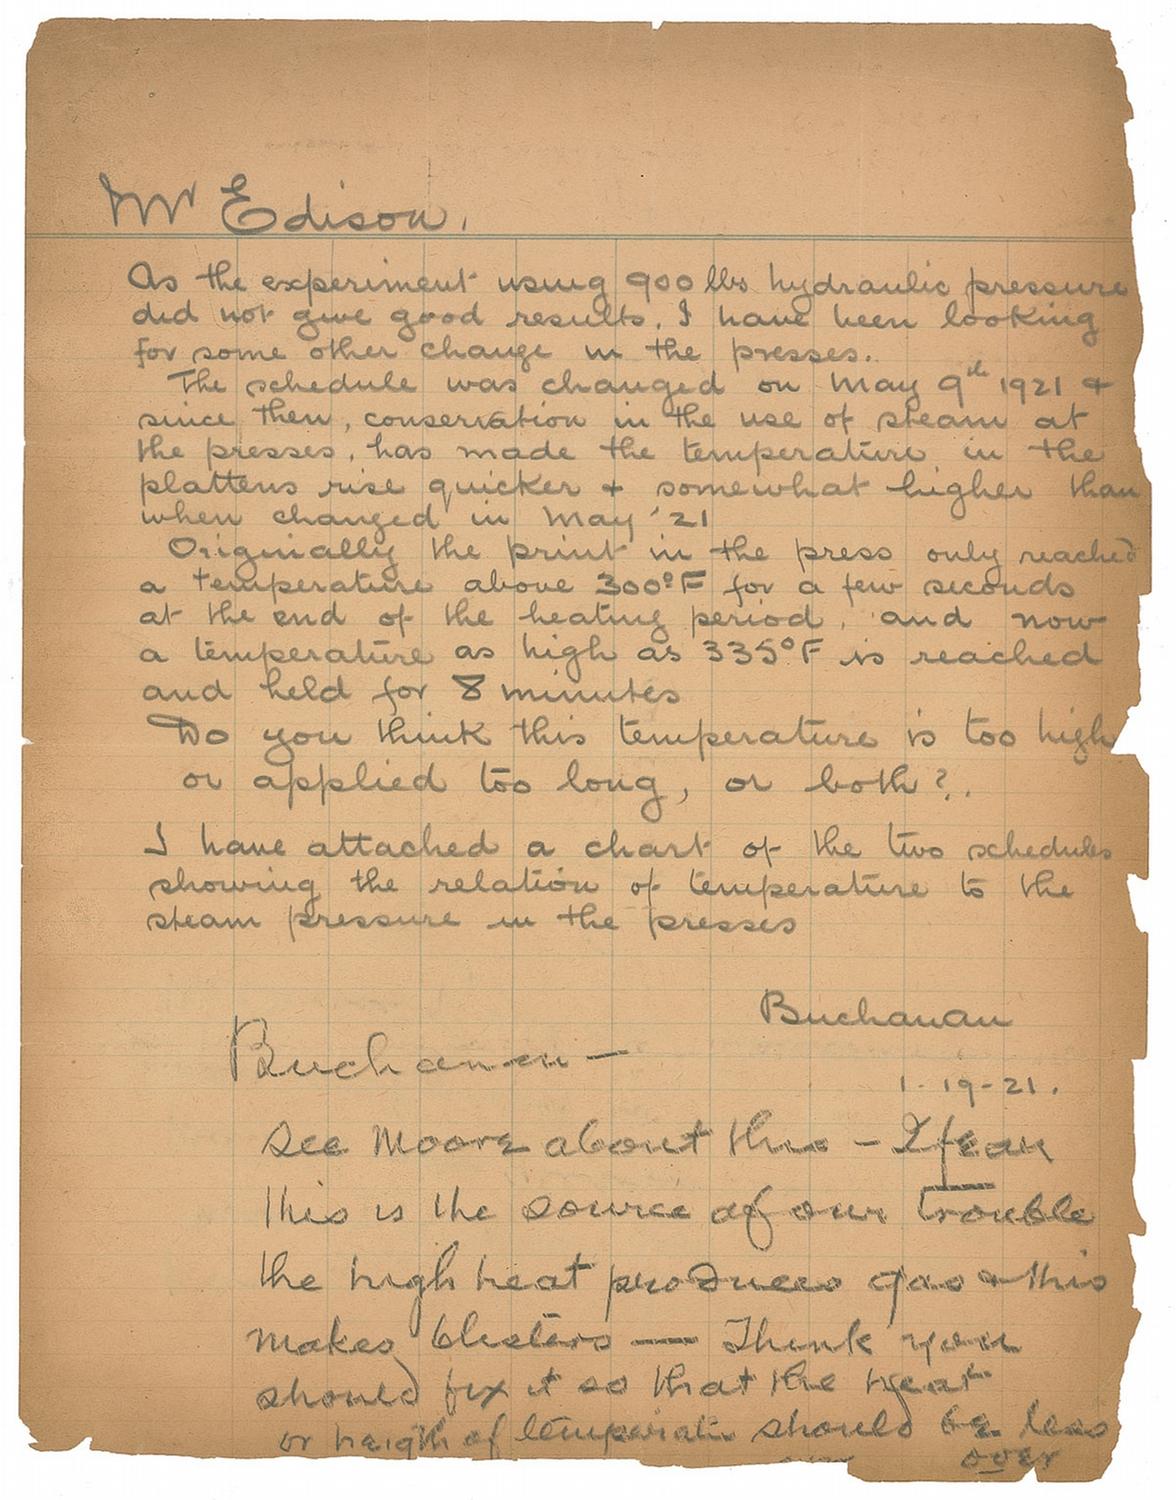 Mr Edison.
As the experiment using 900 lbs hydraulic pressure
did not give good results. I have been looking
for some other change in the presses.
The schedule was changed on May 9th 1921 &
since then, conservation in the use of steam at
the presses, has made the temperature in the
plattens rise quicker + somewhat higher than
when changed in May '21
Originally the print in the press only reached
a temperature above 300°F for a few seconds
at the end of the heating period, and now
a temperature as high as 335°F is reached
and held for 8 minutes
Do you think this temperature is too high
or applied too long, or both?.
I have attached a chart of the two schedules
showing the relation of temperature to the
steam pressure in the presses
Buchanan
Buchanan —
1-19-21.
See Moore about this — I fear
this is the source of our trouble
the high heat produces gas & this
makes blisters — Think you
should fix it so that the heat
or heigth of temperatur should be less
over